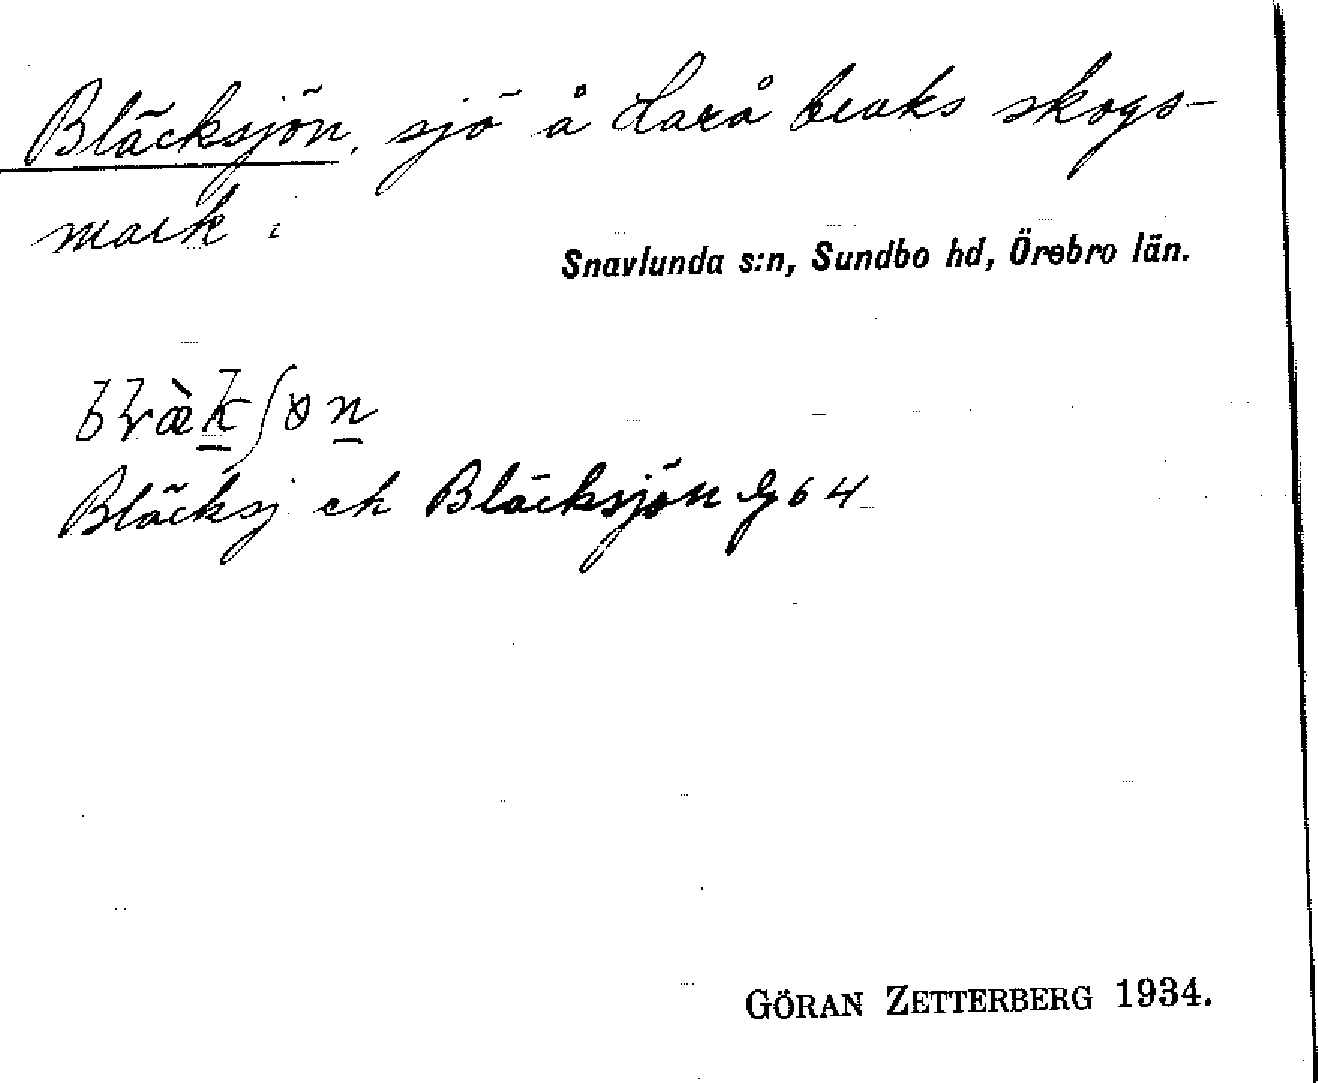 Bläcksjön, sjö å Laxå bruks skogs-
mark i
Snavlunda s:n, Sundbo hd, Örebro län.
Bläcksj ek Bläcksjön G 64
GÖRAN ZETTERBERG 1934.